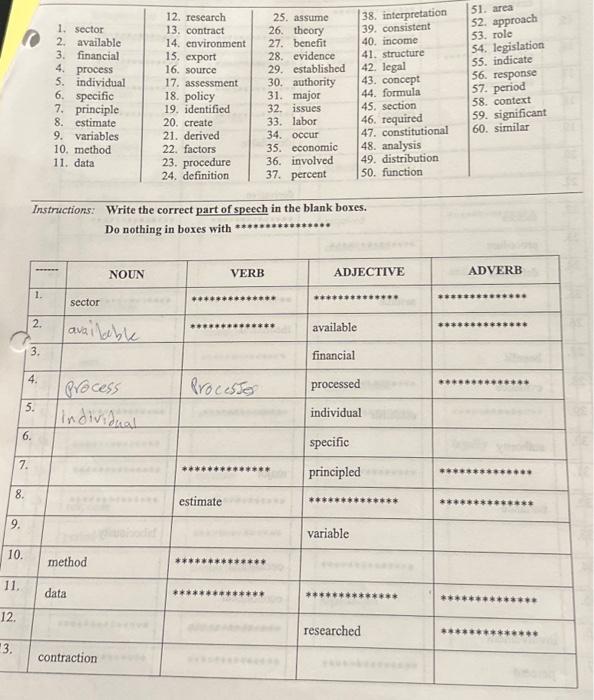 1. sector
2. available
3. financial
4. process
5. individual
6. specific
7. principle
8. estimate
9. variables
10. method
11. data
12. research
13. contract
14. environment
15. export
16. source
17. assessment
18. policy
19. identified
20. create
21. derived
22. factors
23. procedure
24. definition
25. assume
26. theory
27. benefit
28. evidence
29. established
30. authority
31. major
32. issues
33. labor
34. occur
35. economic
36. involved
37. percent
38. interpretation
39. consistent
40. income
41. structure
42. legal
43. concept
44. formula
45. section
46. required
47. constitutional
48. analysis
49. distribution
50. function
51. area
52. approach
53. role
54. legislation
55. indicate
56. response
57. period
58. context
59. significant
60. similar
Instructions: Write the correct part of speech in the blank boxes.
Do nothing in boxes with ****************
------ NOUN VERB ADJECTIVE ADVERB
1. sector ************** ************** **************
2. available ************** available **************
3. financial
4. process processes processed **************
5. individual individual
6. specific
7. ************** principled **************
8. estimate ************** **************
9. variable
10. method **************
11. data ************** ************** **************
12. researched **************
3. contraction